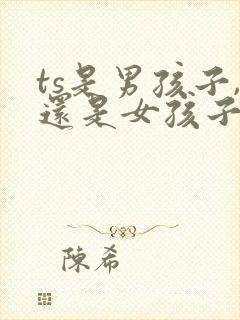 ts是男孩子,
還是女孩子
陳希